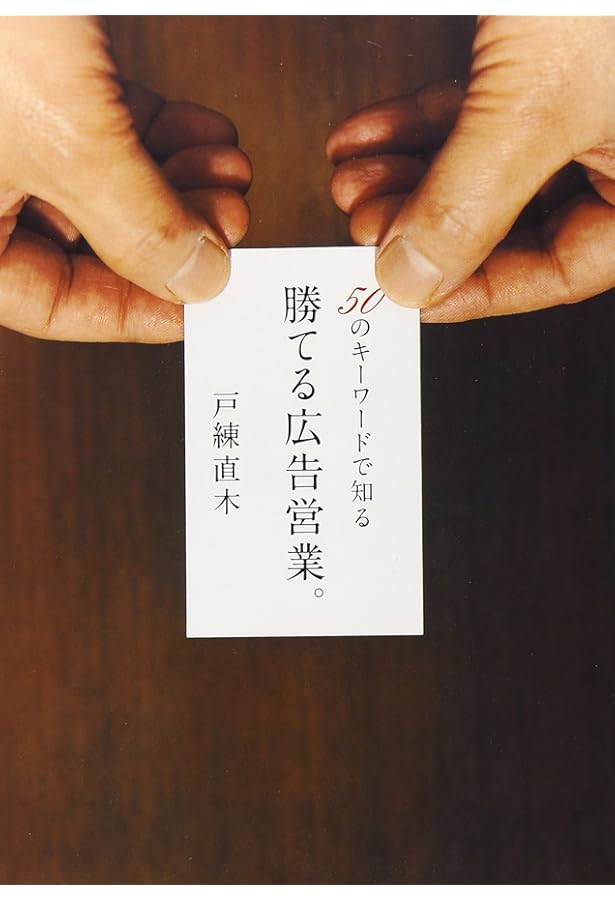 50のキーワードで知る
勝てる広告営業。
戸練直木